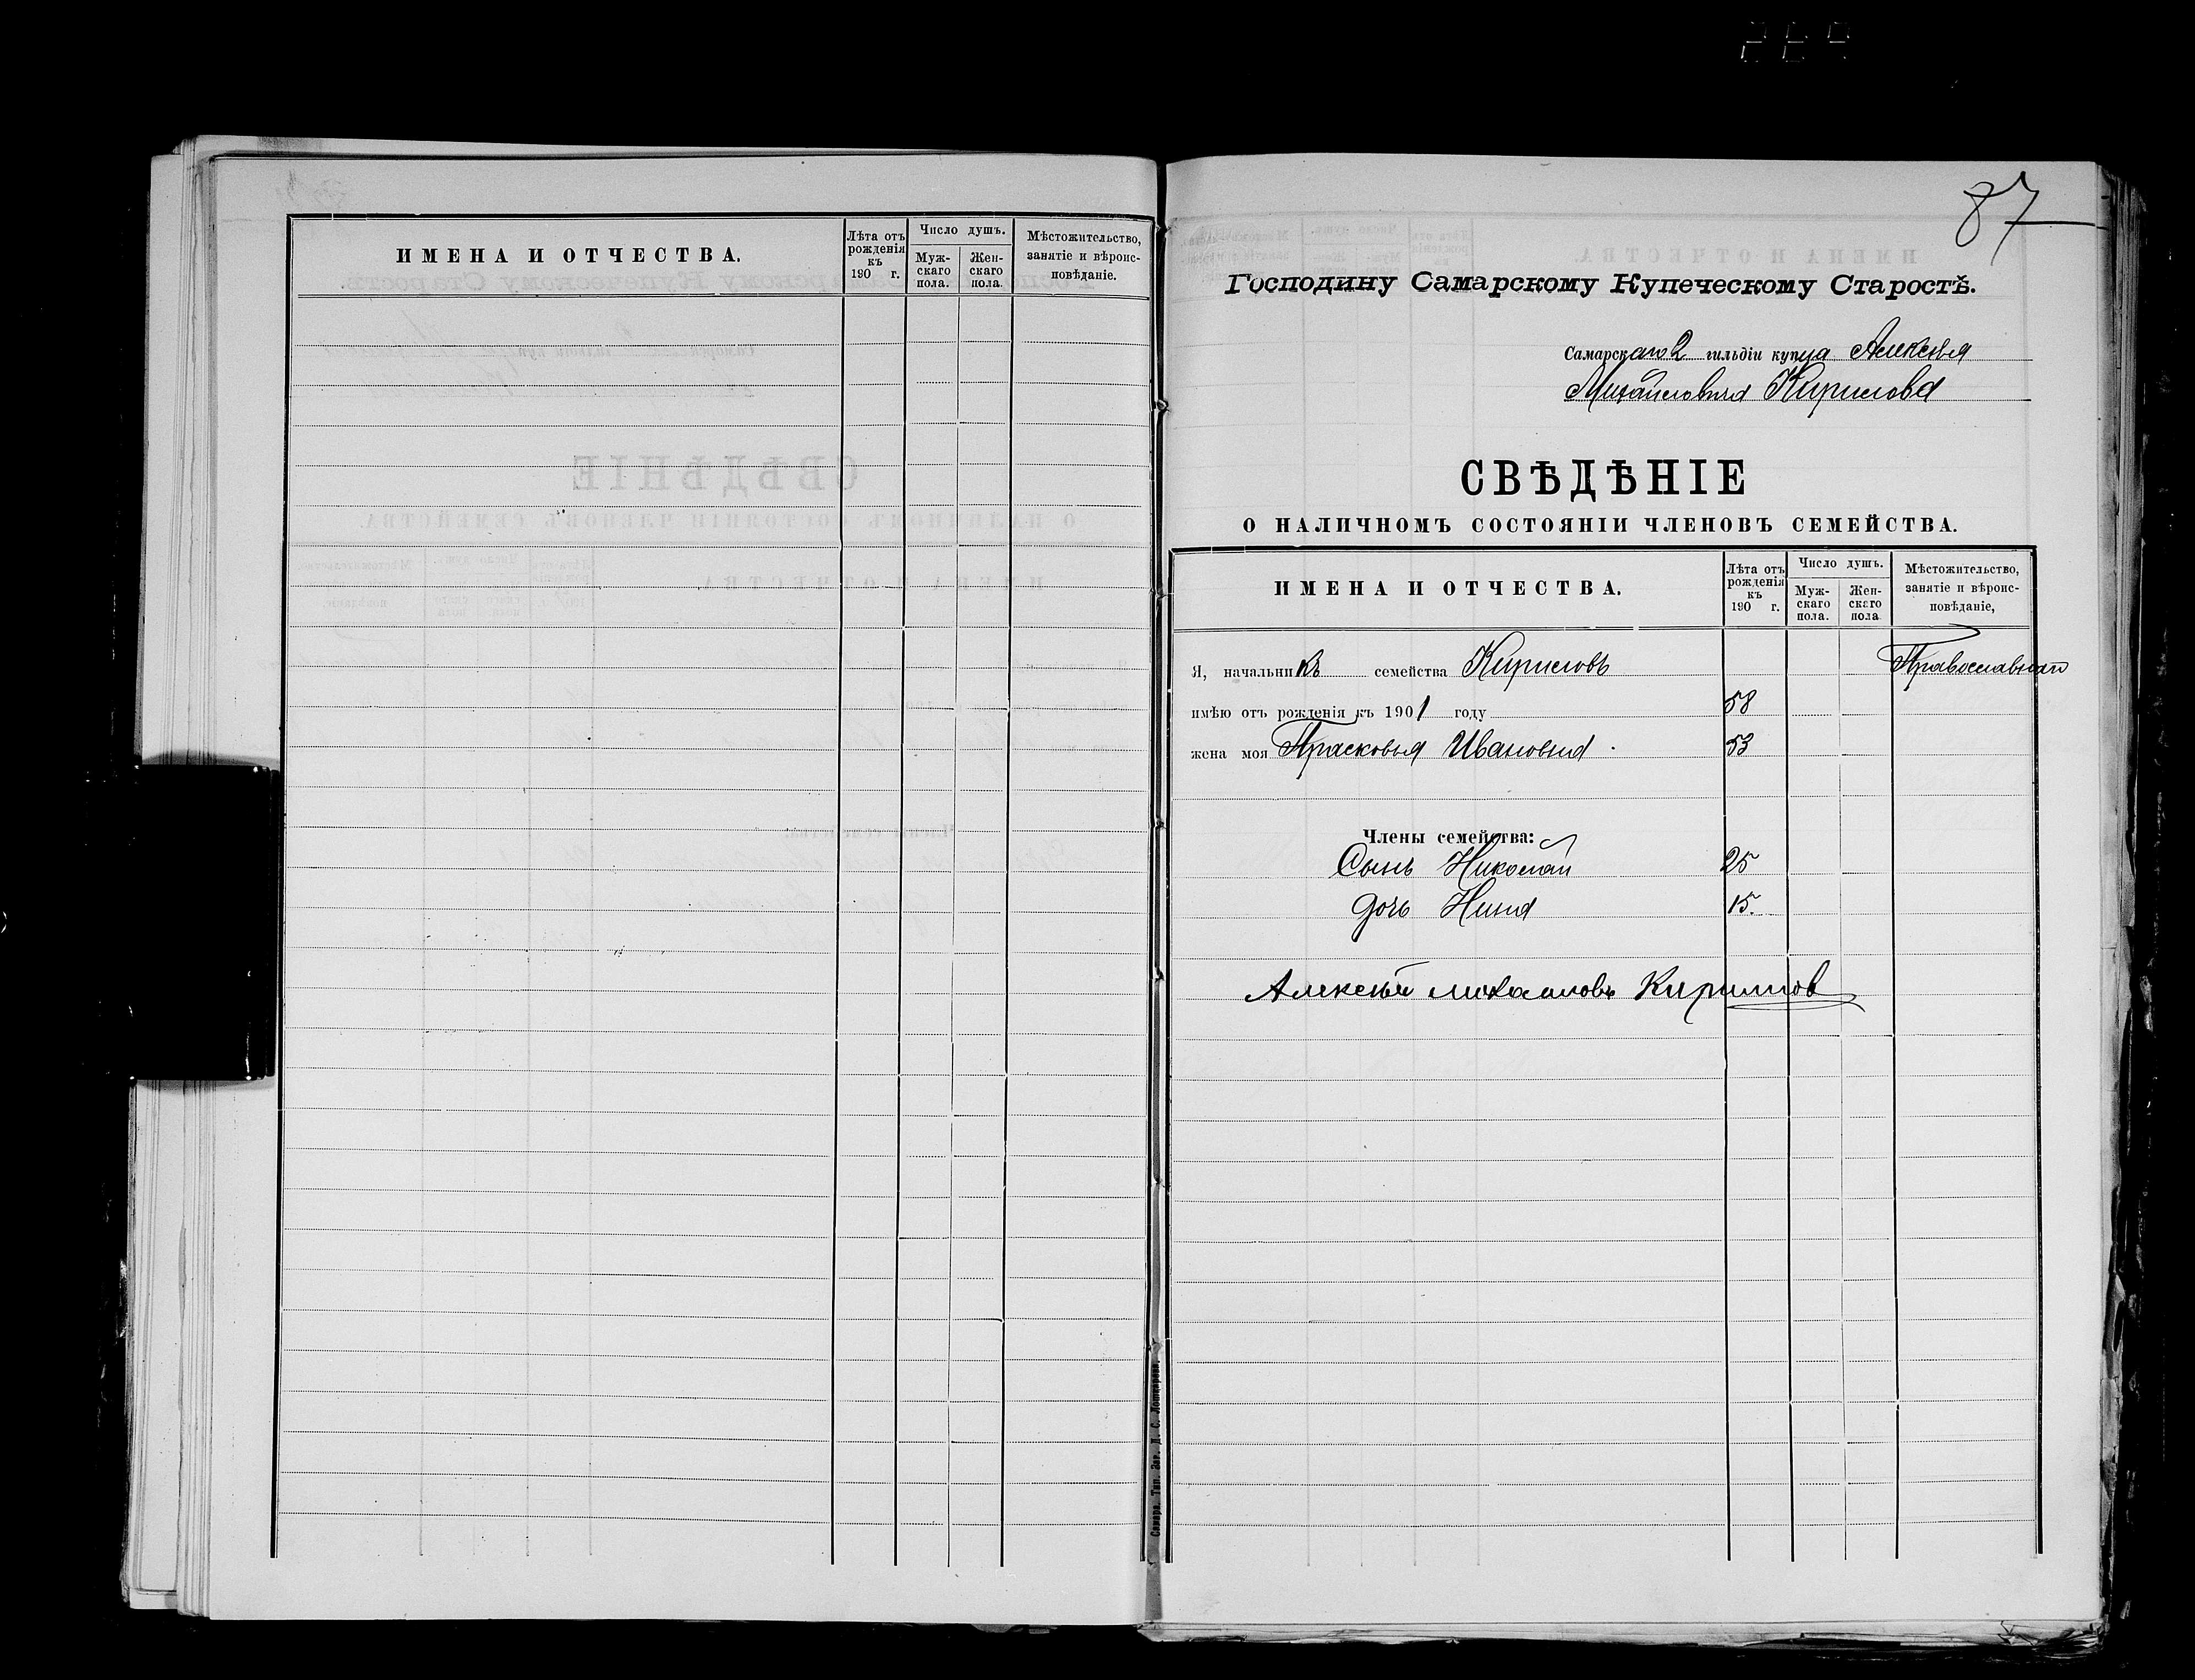 ИМЕНА И ОТЧЕСТВА.
Лѣта отъ рожденія къ 190 г.
Число душъ.
Муж-
скаго
пола.
Жен-
скаго
пола.
Мѣстожительство,
занятіе и вѣроис-
повѣданіе.
87
Господину Самарскому Купеческому Старостѣ.
Самарскаго 2 гильдіи купца Алексѣя
Михайловича Кирилова
СВѢДѢНІЕ
О НАЛИЧНОМЪ СОСТОЯНІИ ЧЛЕНОВЪ СЕМЕЙСТВА.
ИМЕНА И ОТЧЕСТВА.
Лѣта отъ
рожденія
къ
190 г.
Число душъ.
Муж-
скаго
пола.
Жен-
скаго
пола
Мѣстожительство,
занятіе и вѣроис-
повѣданіе,
Я, начальникъ семейства Кириловъ Православнаго
имѣю отъ рожденія къ 1901 году 58
жена моя Прасковья Ивановна 53
Члены семейства:
Сынъ Николай 25
дочь Нина 15.
Алексѣй михаиловъ Кирилов
Самара. Тип. Заг. Д. С. Лошкарева.